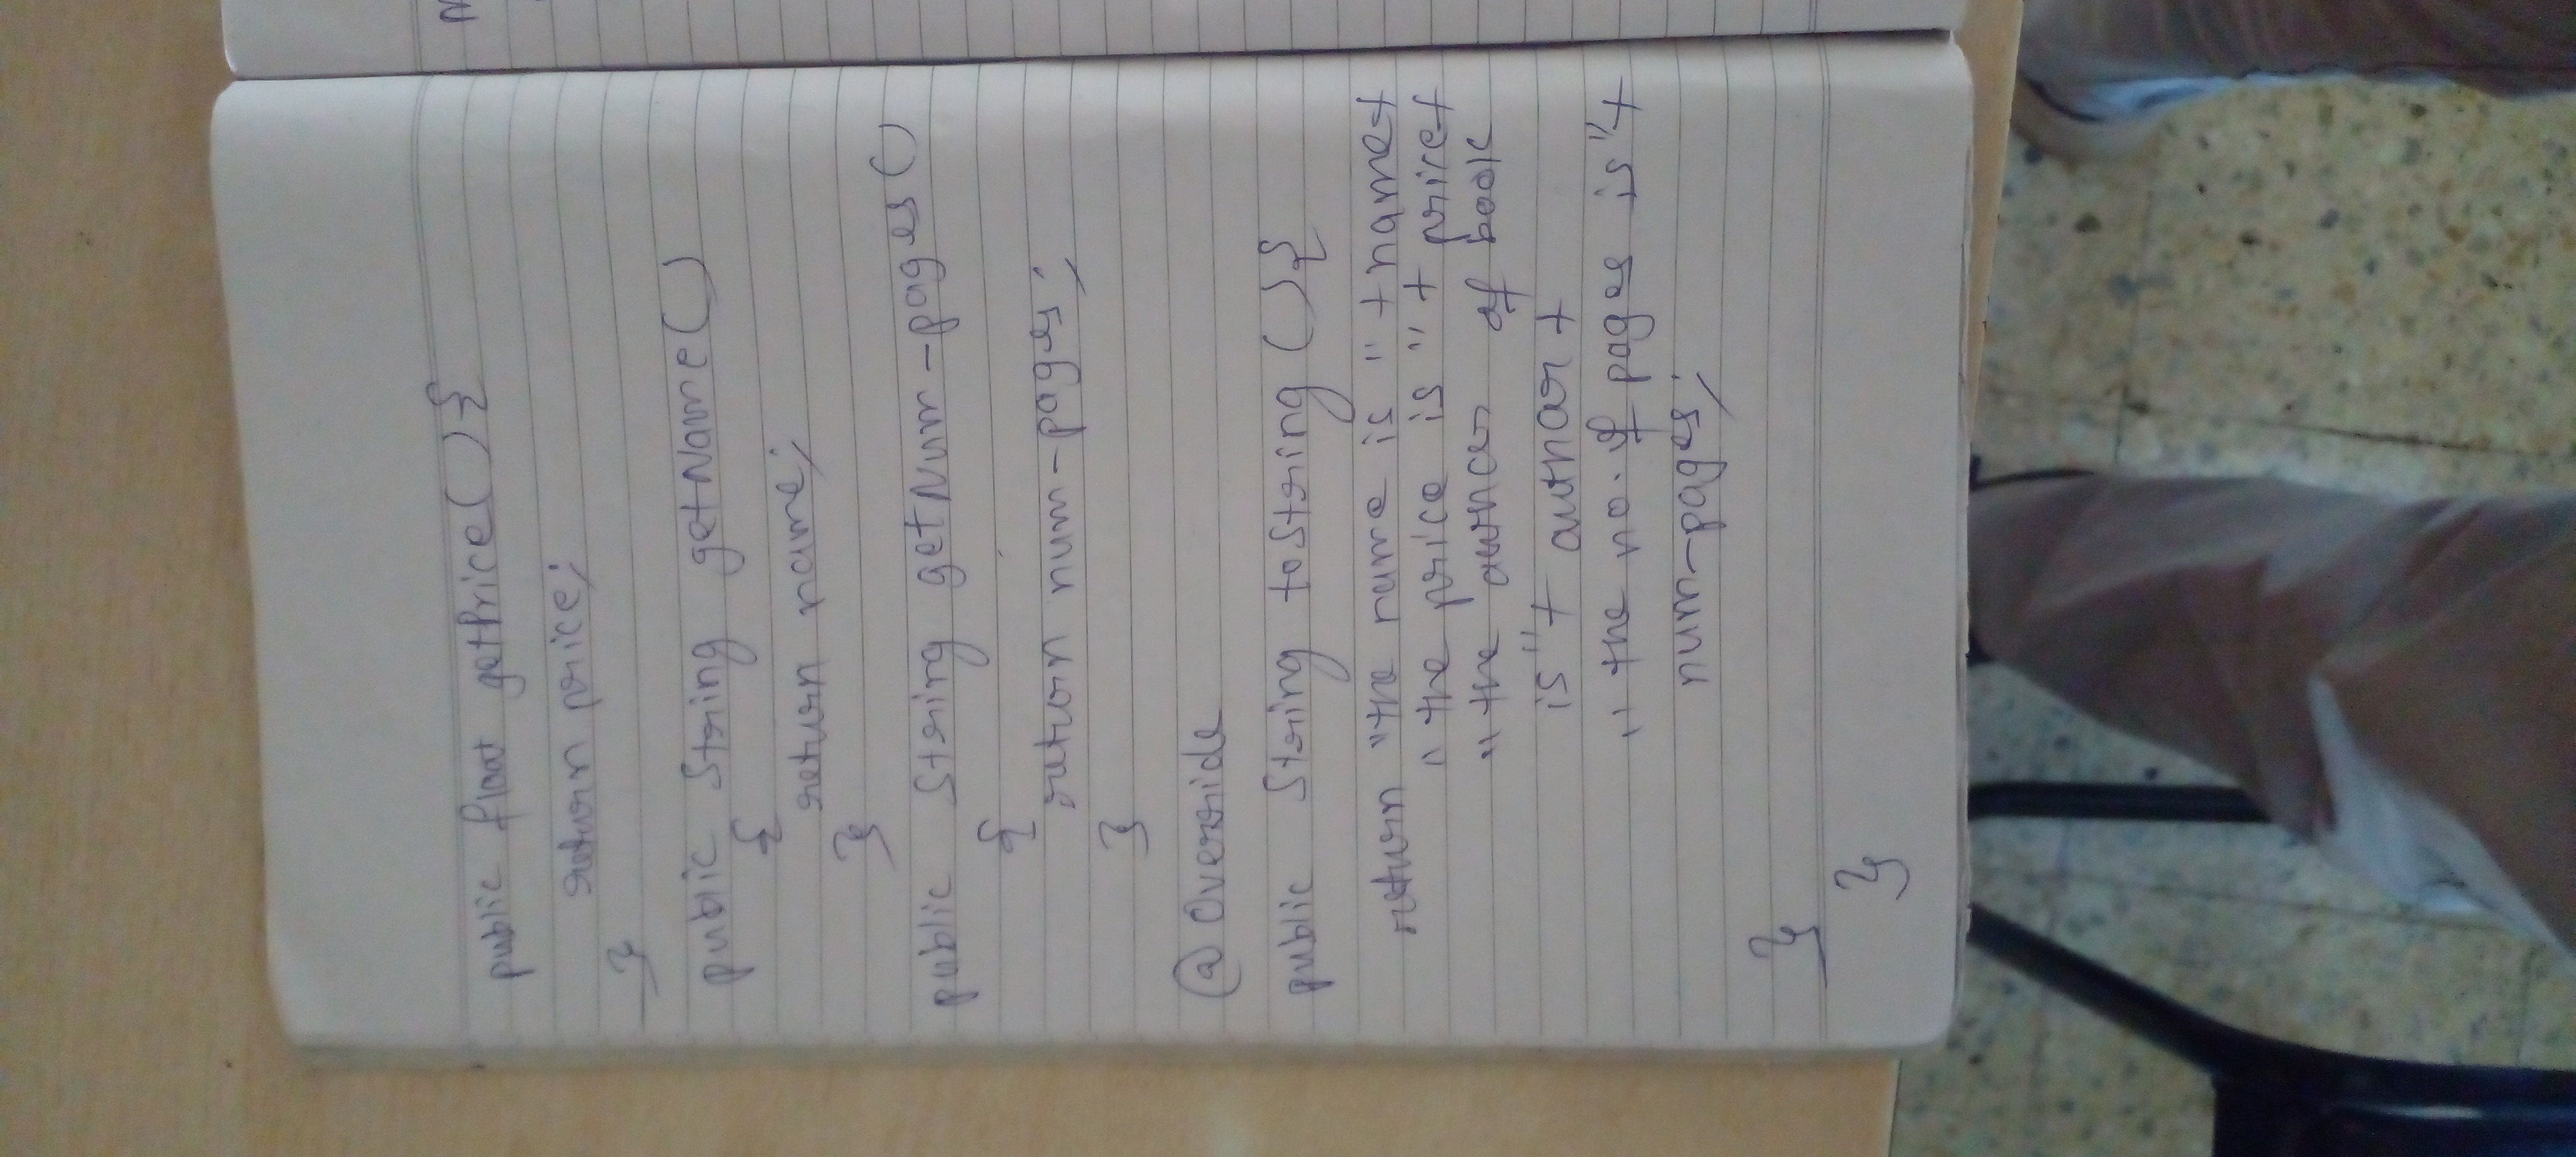 public float getPrice(){
return price;
}
public String getName()
{
return name;
}
public String getNum-pages()
{
return num-pages;
}
@Override
public String toString(){
return "the name is " + name+
" the price is " + price+
" the author of book
is"+ author +
" the no. of pages is"+
num-pages;
}
}